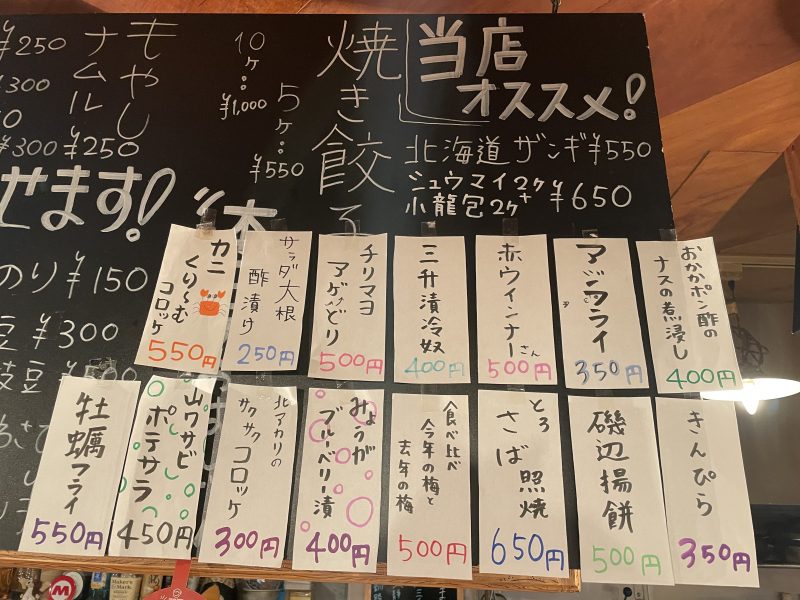 当店
オススメ!
北海道ザンギ¥550
シュウマイ2ヶ
小龍包2ヶ
¥650
焼き餃子
5ヶ:
¥550
10ヶ:
¥1,000
もやし
ナムル
¥250
¥250
¥300
¥300
せます!
のり¥150
豆¥300
枝豆
おかかポン酢の
ナスの煮浸し
400円
アジフライ
350円
赤ウインナーさん
500円
三升漬冷奴
400円
チリマヨ
アゲどり
500円
サラダ大根
酢漬け
250円
カニ
くり〜む
コロッケ
550円
きんぴら
350円
磯辺揚餅
500円
とろ
さば照焼
650円
食べ比べ
今年の梅と
去年の梅
500円
みょうが
ブルーベリー漬
400円
北アカリの
サクサク
コロッケ
300円
山ワサビ
ポテサラ
450円
牡蠣フライ
550円
Maker's
Mark